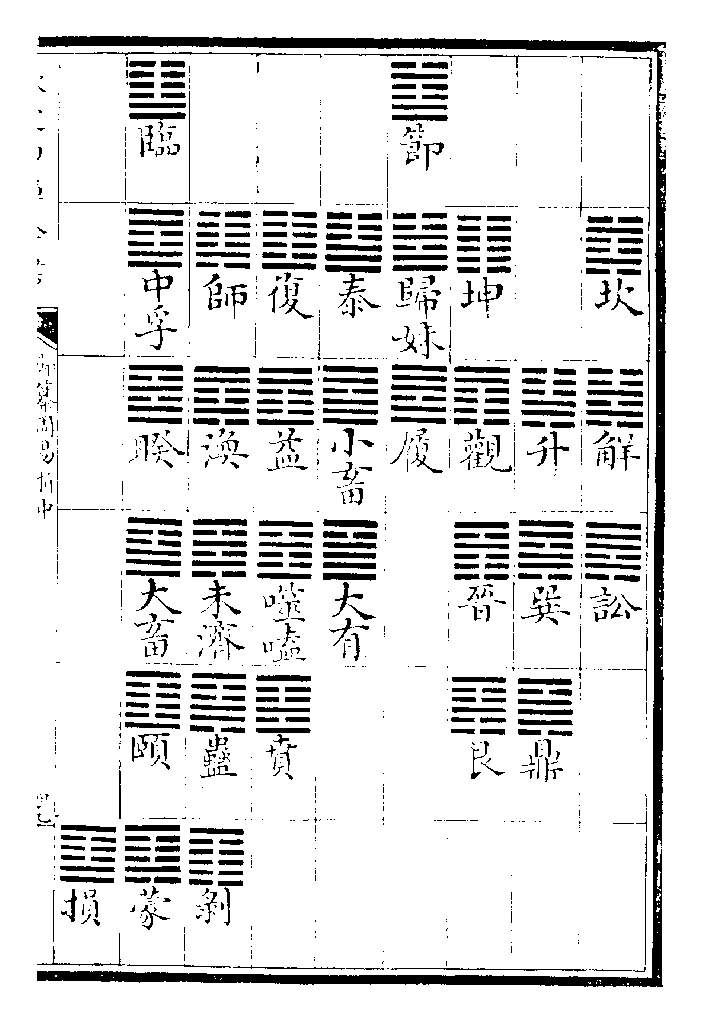 坎解訟
升巽鼎
坤觀晉艮
節歸妹履
泰小畜大有
復益噬嗑賁
師渙未濟蠱剝
臨中孚睽大畜頤蒙
損
御纂周易折中